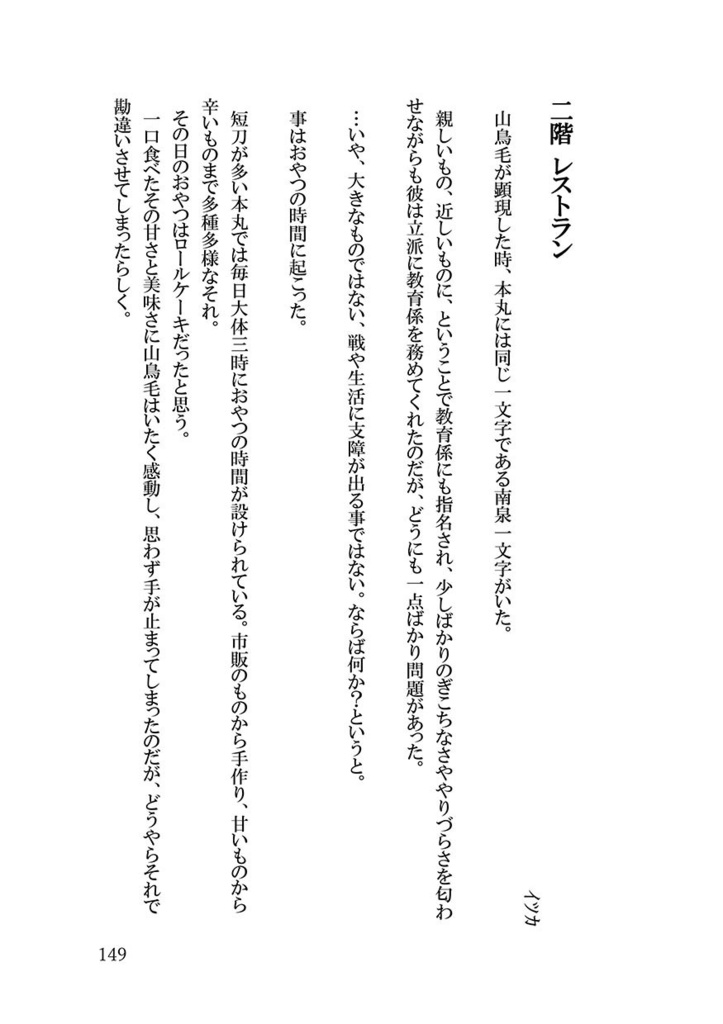 二階 レストラン
イツカ
山鳥毛が顕現した時、本丸には同じ一文字である南泉一文字がいた。
親しいもの、近しいものに、ということで教育係にも指名され、少しばかりのぎこちなさややりづらさを匂わ
せながらも彼は立派に教育係を務めてくれたのだが、どうにも一点ばかり問題があった。
…いや、大きなものではない、戦や生活に支障が出る事ではない。ならば何か？というと。
事はおやつの時間に起こった。
短刀が多い本丸では毎日大体三時におやつの時間が設けられている。市販のものから手作り、甘いものから
辛いものまで多種多様なそれ。
その日のおやつはロールケーキだったと思う。
一口食べたその甘さと美味さに山鳥毛はいたく感動し、思わず手が止まってしまったのだが、どうやらそれで
勘違いさせてしまったらしく。
149